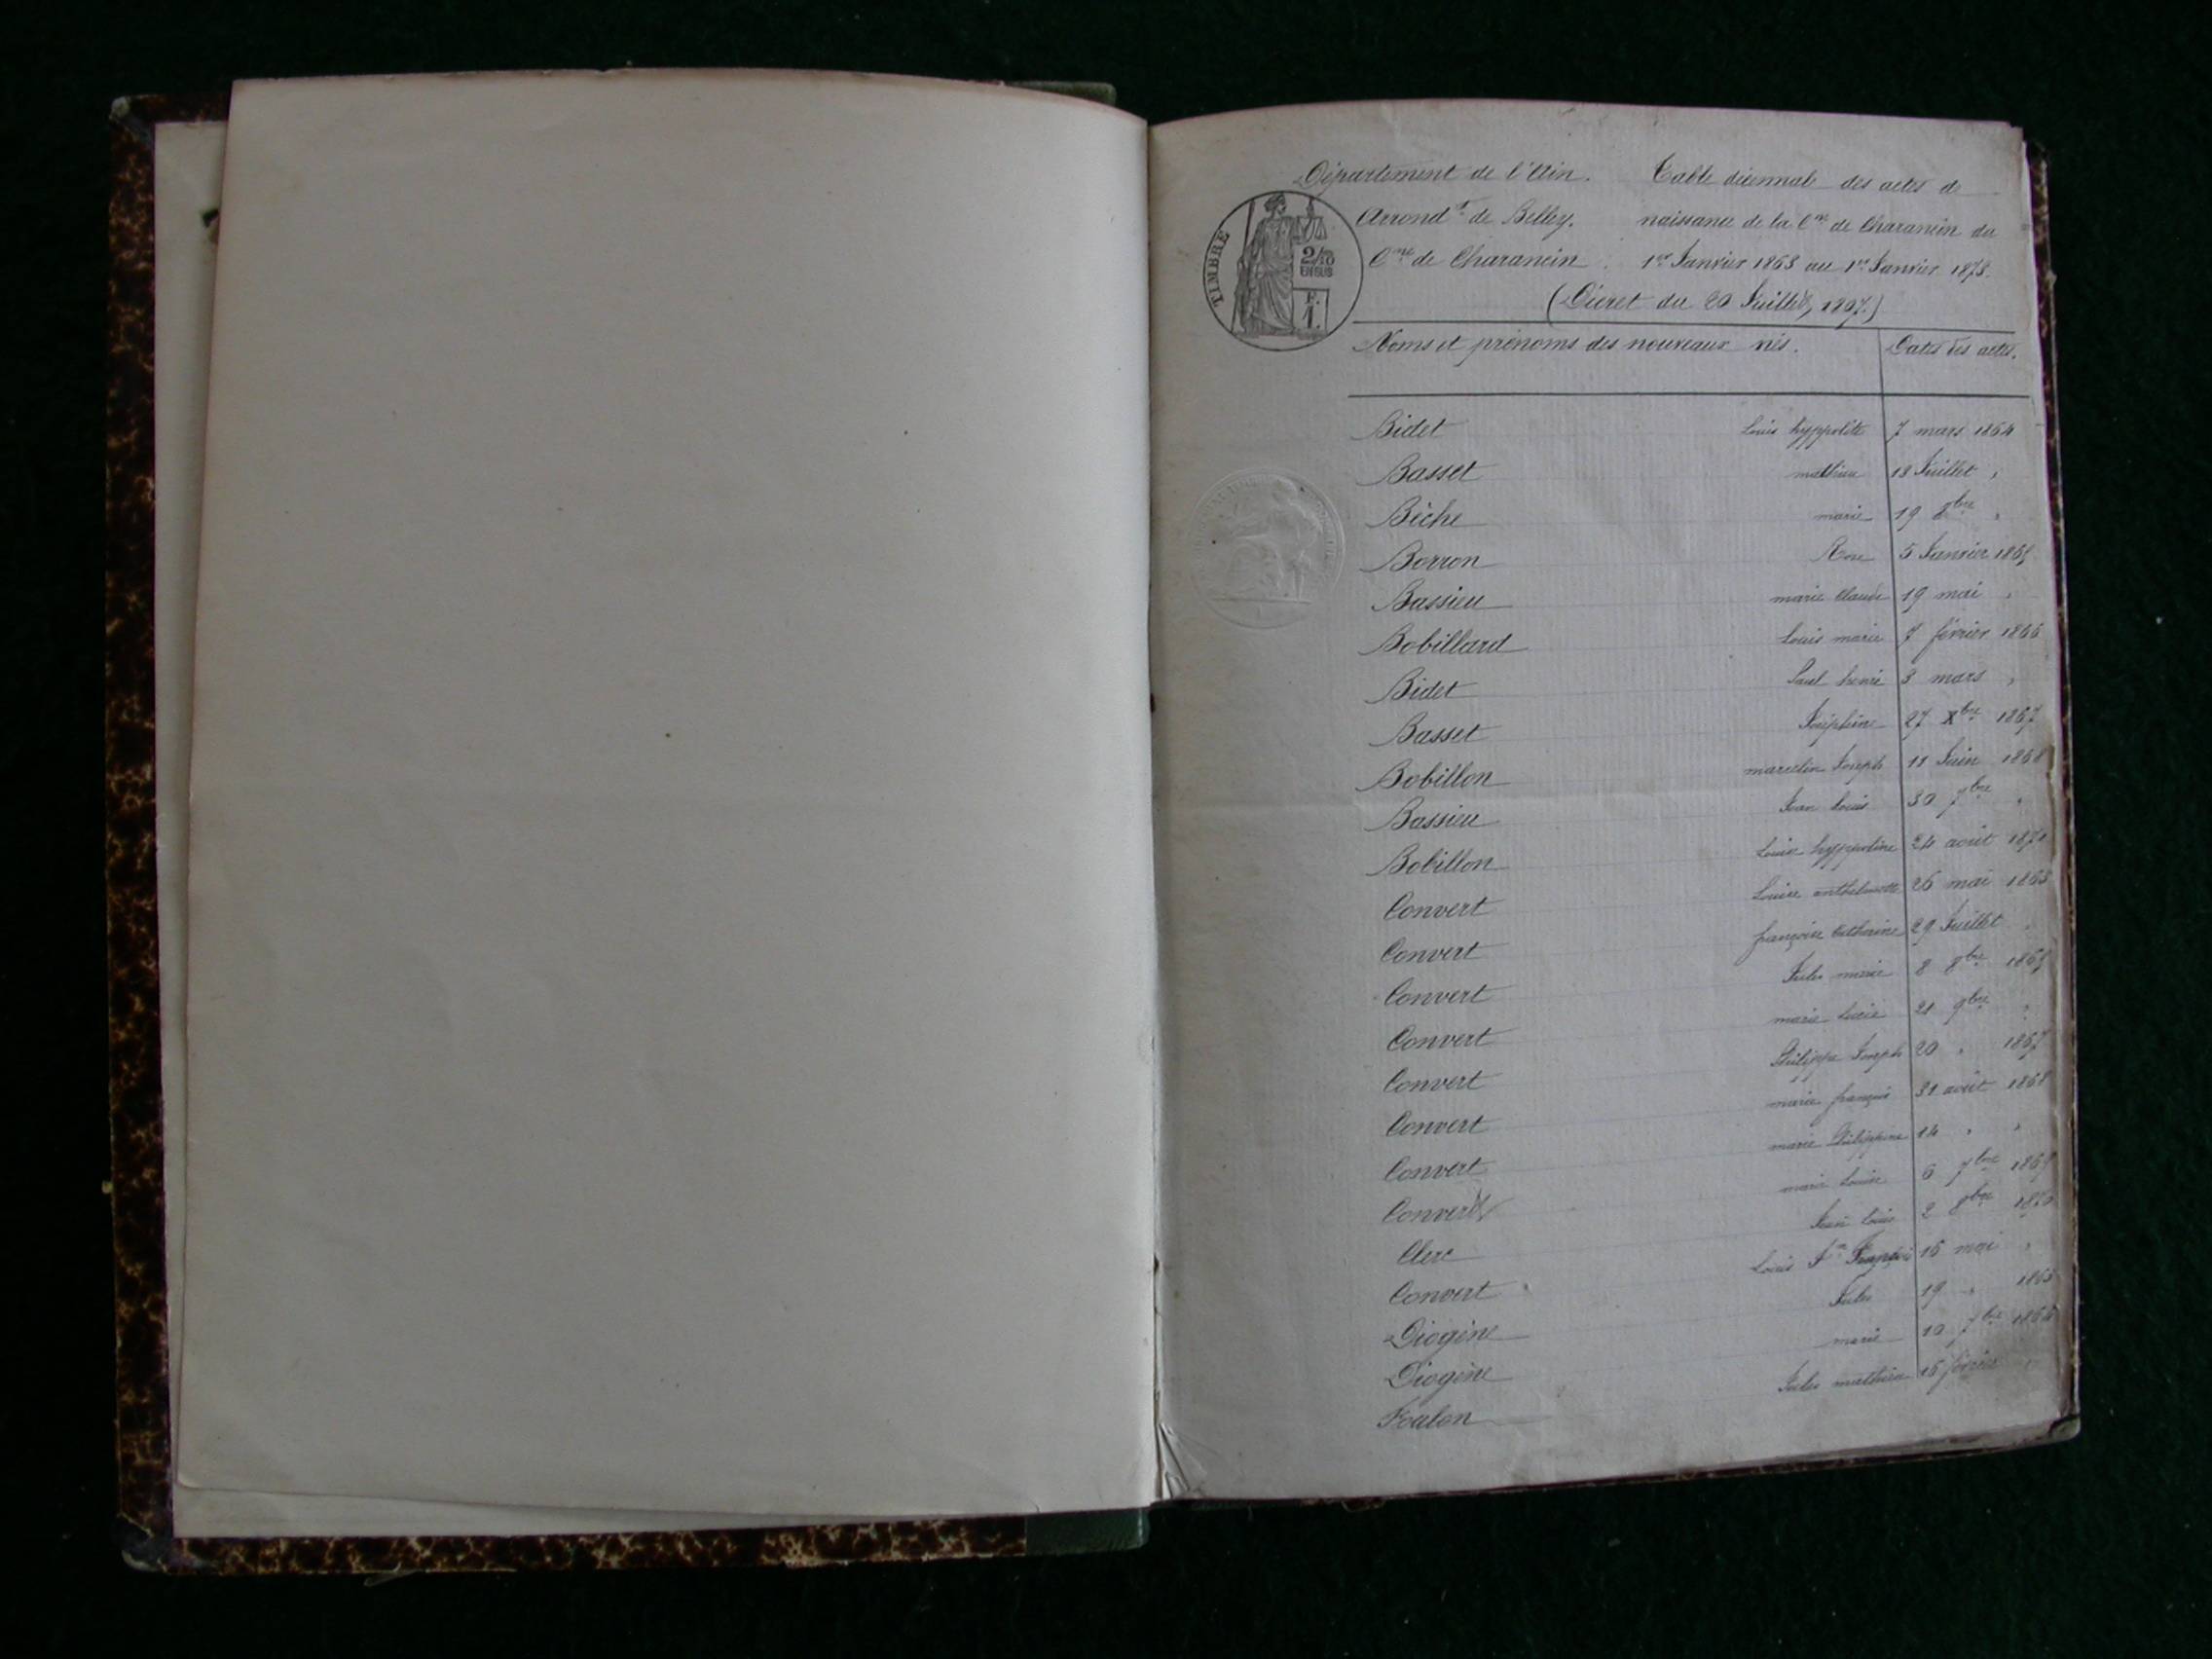 Département de l'Ain. Table décennale des actes de
Arrond.t de Belley. naissance de la Cne de Charancin du
Cne de Charancin. 1er Janvier 1863 au 1er Janvier 1873.
(Décret du 20 Juillet, 1807.)
TIMBRE
2/10
EN SUS
F.
1.
Noms et prénoms des nouveaux nés. Dates des actes.
Bidet Louis hyppolite 7 mars 1864
Basset mathieu 18 Juillet "
Bèche marie 19 8bre "
Borron Rose 5 Janvier 1865
Bassieu marie Claude 19 mai "
Bobillard Louis marie 7 février 1866
Bidet Paul henri 3 mars "
Basset Joséphine 27 Xbre 1867
Bobillon marcelin Joseph 11 Juin 1868
Bassieu Jean Louis 30 7bre "
Bobillon Louise hyppoline 24 août
Convert Louise anthelmette 26 mai 1863
Convert françoise Catherine 29 Juillet "
Convert Jules marie 8 8bre
Convert marie Lucie 21 9bre "
Convert Philippe Joseph 20 " 1867
Convert marie françois 31 août 1868
Convert marie Philippine 14 " "
Convert marie Louise 6 7bre
Clerc Jean Louis 2 8bre 1870
Convert Louis Jn François 15 mai "
Diogène Jules 19 " 1863
Diogène marie 10 7bre 1864
Foulon Jules mathieu 15 février "